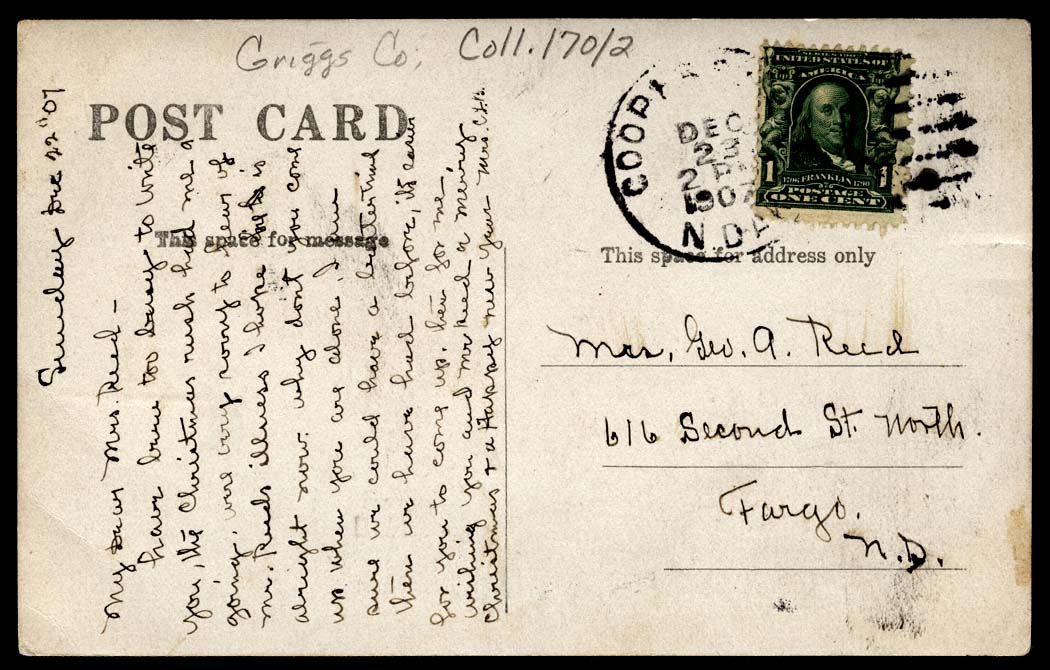 Griggs Co, Coll.170/2
POST CARD
This space for message
Sunday Dec 22" 07
My Dear Mrs. Reed -
have been too busy to write
you, the Christmas rush had me a
going. were very sorry to hear of
Mr. Reeds illness I hope he is
alright now. why dont you come
up when you are alone, I am
sure we could have a better time
then we have had before, its easier
for you to come up. then for me,
wishing you and Mr Reed a merry
Christmas & a Happy new year Mrs.
COOP
DEC
23
2 PM
1907
N DA
SERIES 1902
UNITED STATES OF
AMERICA
1706 FRANKLIN 1790
1 1
POSTAGE
ONE CENT
This space for address only
Mrs, Geo. A. Reed
616 Second St. North.
Fargo.
N.D.